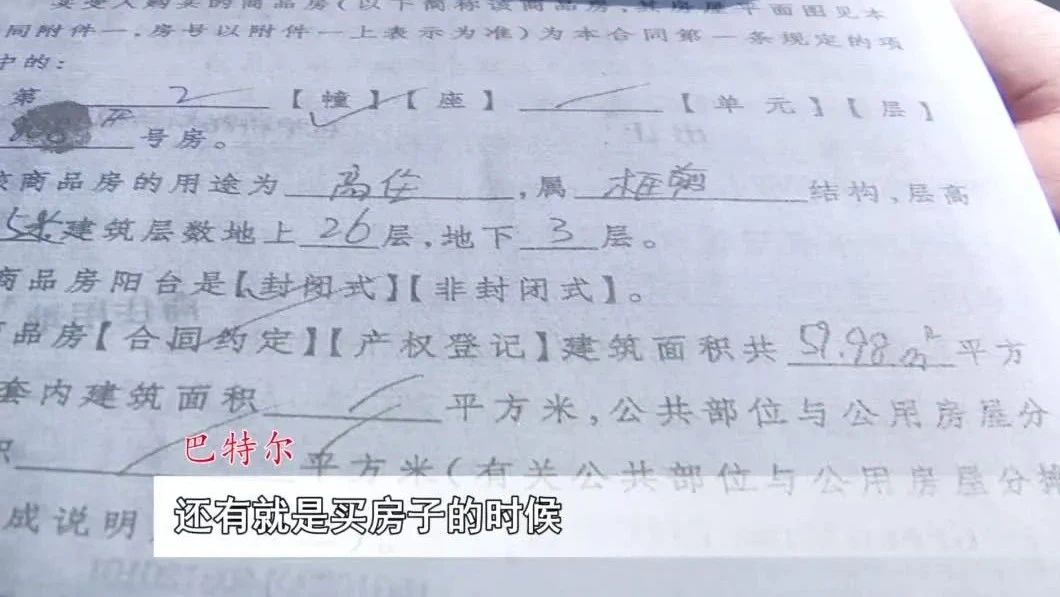 买受人购买的商品房(以下简称该商品房,其房屋平面图见本
同附件一,房号以附件一上表示为准)为本合同第一条规定的项
中的:
第 2 【幢】【座】 【单元】【层】
号房。
商品房的用途为 高住 ,属 框剪 结构,层高
5米建筑层数地上 26 层,地下 3 层。
商品房阳台是【封闭式】【非封闭式】。
品房【合同约定】【产权登记】建筑面积共 59.98m² 平方
套内建筑面积 平方米,公共部位与公用房屋分
积 平方米(有关公共部位与公用房屋分摊
巴特尔
成说明
还有就是买房子的时候